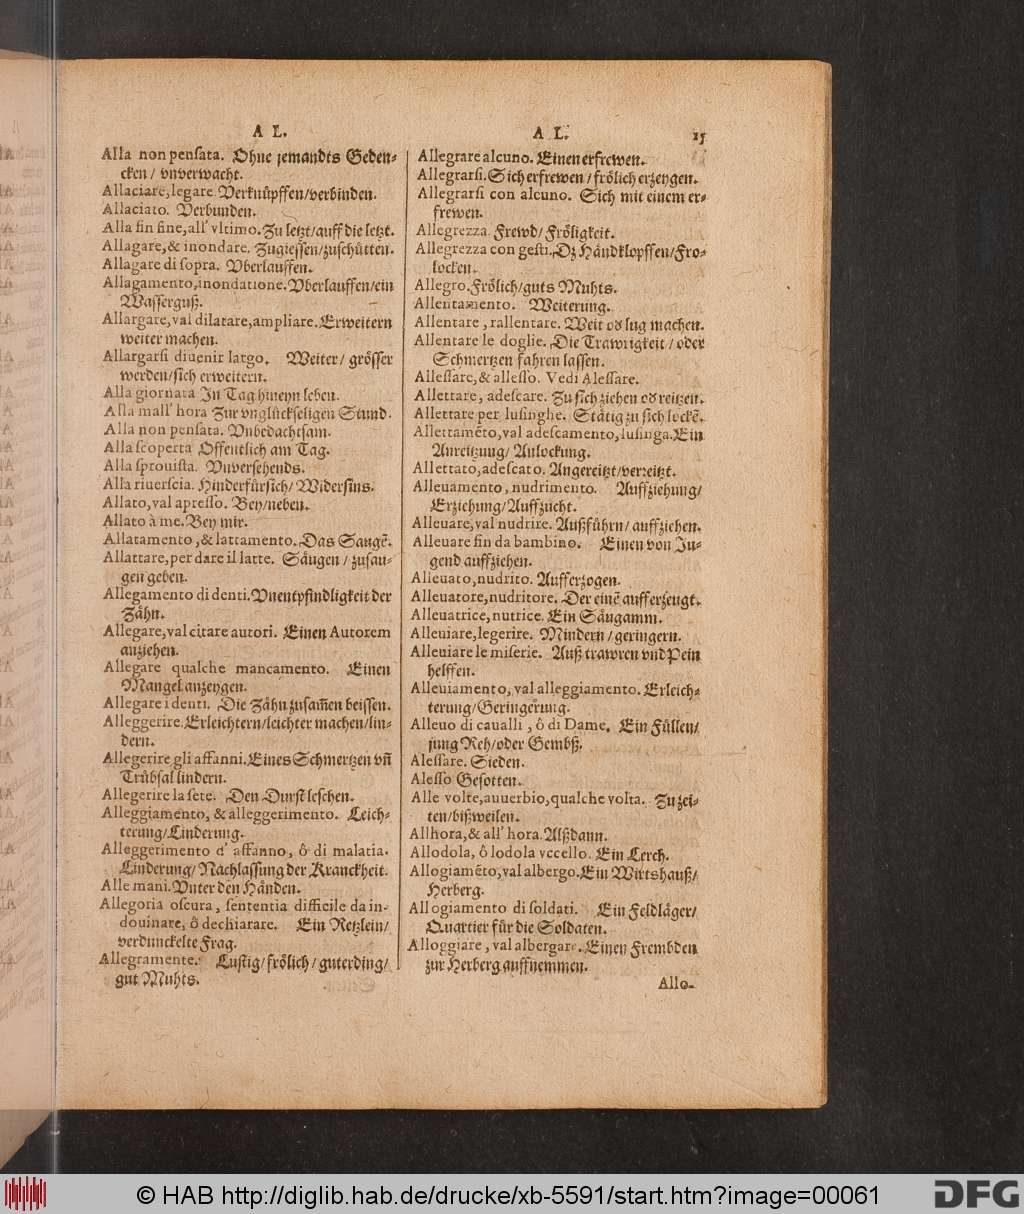 A L.
Alla non pensata. Ohne jemandts Geden-
cken / vnverwacht.
Allaciare, legare. Verknüpffen/verbinden.
Allaciato. Verbunden.
Alla fin fine, all' vltimo. Zu letzt/auff die letzt.
Allagare, & inondare. Zugiessen/zuschütten.
Allagare di sopra. Vberlauffen.
Allagamento, inondatione. Vberlauffen/ein
Wasserguß.
Allargare, val dilatare, ampliare. Erweitern
weiter machen.
Allargarsi diuenir largo. Weiter/ grösser
werden/sich erweitern.
Alla giornata In Tag hineyn leben.
Alla mall' hora Zur vnglückseligen Stund.
Alla non pensata. Vnbedachtsam.
Alla scoperta Offentlich am Tag.
Alla sprouista. Vnversehends.
Alla riuerscia. Hinderfürsich/ Widersins.
Allato, val apresso. Bey/neben.
Allato à me. Bey mir.
Allatamento, & lattamento. Das Saugẽ.
Allattare, per dare il latte. Säugen / zusau-
gen geben.
Allegamento di denti. Vnentpfindligkeit der
Zähn.
Allegare, val citare autori. Einen Autorem
anziehen.
Allegare qualche mancamento. Einen
Mangel anzeygen.
Allegare i denti. Die Zähn zusam̃en beissen.
Alleggerire. Erleichtern/leichter machen/lin-
dern.
Allegerire gli affanni. Eines Schmertzen vñ
Trübsal lindern.
Allegerire la sete. Den Durst leschen.
Alleggiamento, & alleggerimento. Leich-
terung/Linderung.
Alleggerimento d' affanno, ô di malatia.
Linderung/Nachlassung der Kranckheit.
Alle mani. Vnter den Händen.
Allegoria oscura, sententia difficile da in-
douinare, ô dechiarare. Ein Retzlein/
verdunckelte Frag.
Allegramente. Lustig/frölich/guterding/
gut Muhts.
A L. 15
Allegrare alcuno. Einen erfrewen.
Allegrarsi. Sich erfrewen/frölich erzeygen.
Allegrarsi con alcuno. Sich mit einem er-
frewen.
Allegrezza Frewd/Fröligkeit.
Allegrezza con gesti. Dz Händklopffen/Fro-
locken.
Allegro. Frölich/guts Muhts.
Allentamento. Weiterung.
Allentare, rallentare. Weit od lug machen.
Allentare le doglie. Die Trawrigkeit / oder
Schmertzen fahren lassen.
Allessare, & allesso. Vedi Alessare.
Allettare, adescare. Zu sich ziehen od reitzen.
Allettare per lusinghe. Stätig zu sich lockẽ.
Allettamẽto, val adescamento, lusinga. Ein
Anreitzung/ Anlockung.
Allettato, adescato. Angereitzt/verreitzt.
Alleuamento, nudrimento. Auffziehung/
Erziehung/Auffzucht.
Alleuare, val nudrire. Außführn/ auffziehen.
Alleuare fin da bambino. Einen von Ju-
gend auffziehen.
Alleuato, nudrito. Aufferzogen.
Alleuatore, nudritore. Der einẽ aufferzeugt.
Alleuatrice, nutrice. Ein Säugamm.
Alleuiare, legerire. Mindern/geringern.
Alleuiare le miserie. Auß trawren vnd Pein
helffen.
Alleuiamento, val alleggiamento. Erleich-
terung/Geringerung.
Alleuo di caualli, ô di Dame. Ein Füllen/
jung Reh/oder Gembß.
Alessare. Sieden.
Alesso Gesotten.
Alle volte, auuerbio, qualche volta. Zu zei-
ten/bißweilen.
Allhora, & all' hora. Alßdann.
Allodola, ô lodola vccello. Ein Lerch.
Allogiamẽto, val albergo. Ein Wirtshauß/
Herberg.
Allogiamento di soldati. Ein Feldläger/
Quartier für die Soldaten.
Alloggiare, val albergare. Einen Frembden
zur Herberg auffnemmen.
Allo-
© HAB http://diglib.hab.de/drucke/xb-5591/start.htm?image=00061
DFG